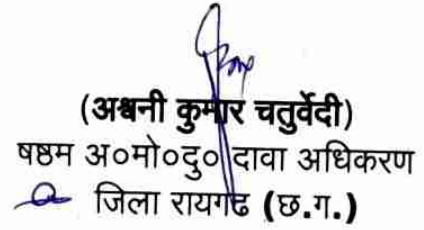 (अश्वनी कुमार चतुर्वेदी)
षष्ठम अ०मो०दु० दावा अधिकरण
जिला रायगढ (छ.ग.)